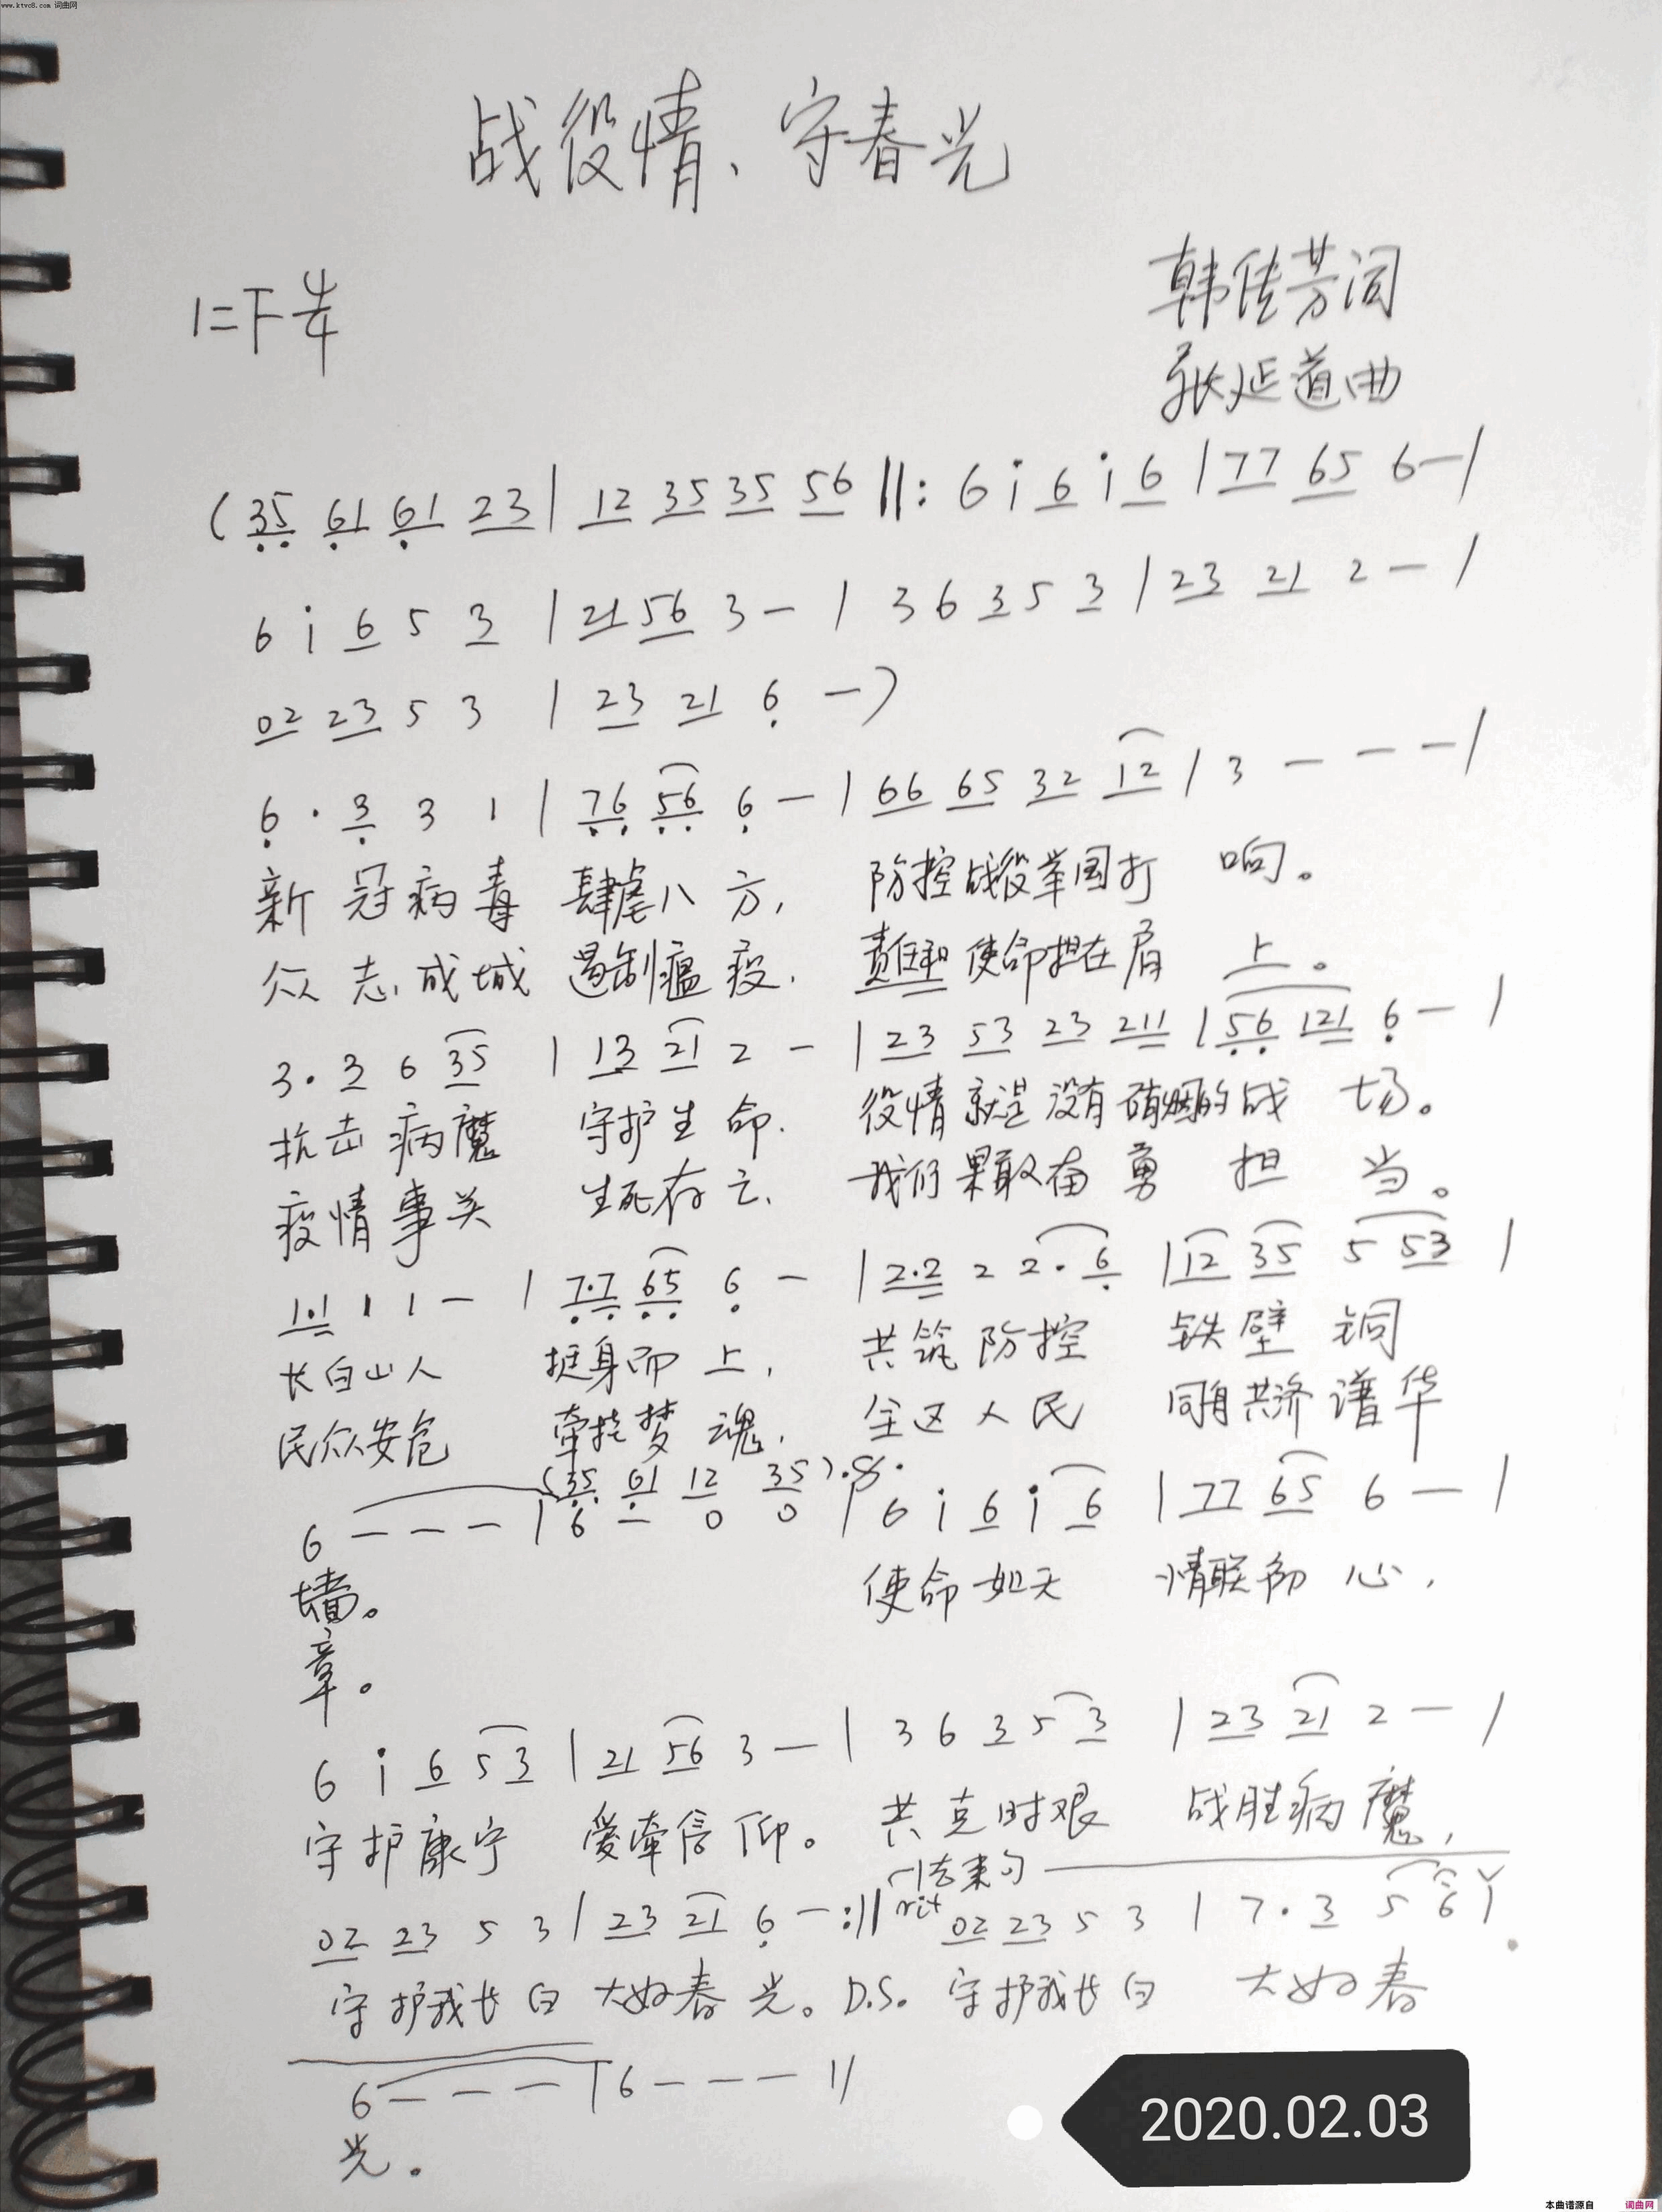 www.ktvc8.com 词曲网
战役情、守春光
1=F 4/4
韩佳芳词
张延道曲
(35 61 61 23 | 12 35 35 56 ‖: 6 i 6 i 6 | 77 65 6 — |
6 i 6 5 3 | 21 56 3 — | 3 6 3 5 3 | 23 21 2 — |
02 23 5 3 | 23 21 6 —)
6 · 3 3 1 | 76 56 6 — | 66 65 32 12 | 3 — — — |
新冠病毒 肆虐八方, 防控战役举国打 响。
众志成城 遏制瘟疫. 责任和使命担在肩 上。
3 · 3 6 35 | 13 21 2 — | 23 53 23 211 | 56 121 6 — |
抗击病魔 守护生命. 役情就是没有硝烟的战 场。
疫情事关 生死存亡. 我们果敢奋勇 担 当。
1·1 1 1 — | 7·7 65 6 — | 2·2 2 2 · 6 | 12 35 5 53 |
长白山人 挺身而上, 共筑防控 铁壁铜
民众安危 牵挂梦魂. 全区人民 同舟共济谱华
(35 61 12 35) ·S·
6 — — — | 6 — 0 0 | 6 i 6 i 6 | 77 65 6 — |
墙。 使命如天 情联初心,
章。
6 i 6 5 3 | 21 56 3 — | 3 6 3 5 3 | 23 21 2 — |
守护康宁 爱牵信仰。 共克时艰 战胜病魔,
结束句
02 23 5 3 | 23 21 6 — :‖ rit 02 23 5 3 | 7 · 3 5 6 |
守护我长白 大好春光。D.S. 守护我长白 大好春
6 — — — | 6 — — — ‖
光.
2020.02.03
本曲谱源自 词曲网